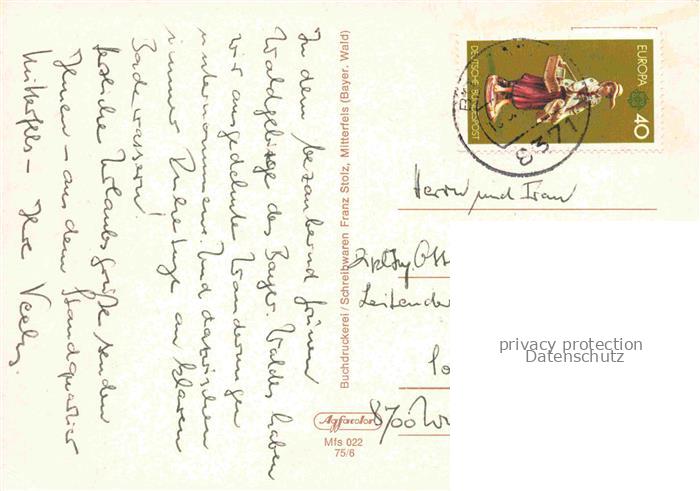 In dem bezaubernd grünen
Waldgebirge des Bayer. Waldes haben
wir ausgedehnte Wanderungen
unternommen. Und dazwischen
immer Ruhetage an klaren
Badewassern!
Herzliche Urlaubsgrüße senden
Ihnen – aus dem Standquartier
Mitterfels – Ihre
Buchdruckerei / Schreibwaren Franz Stolz, Mitterfels (Bayer. Wald)
Agfacolor
Mfs 022
75/6
EUROPA
40
DEUTSCHE BUNDESPOST
8371
Herrn und Frau
Dipl.Ing.
8700
privacy protection
Datenschutz